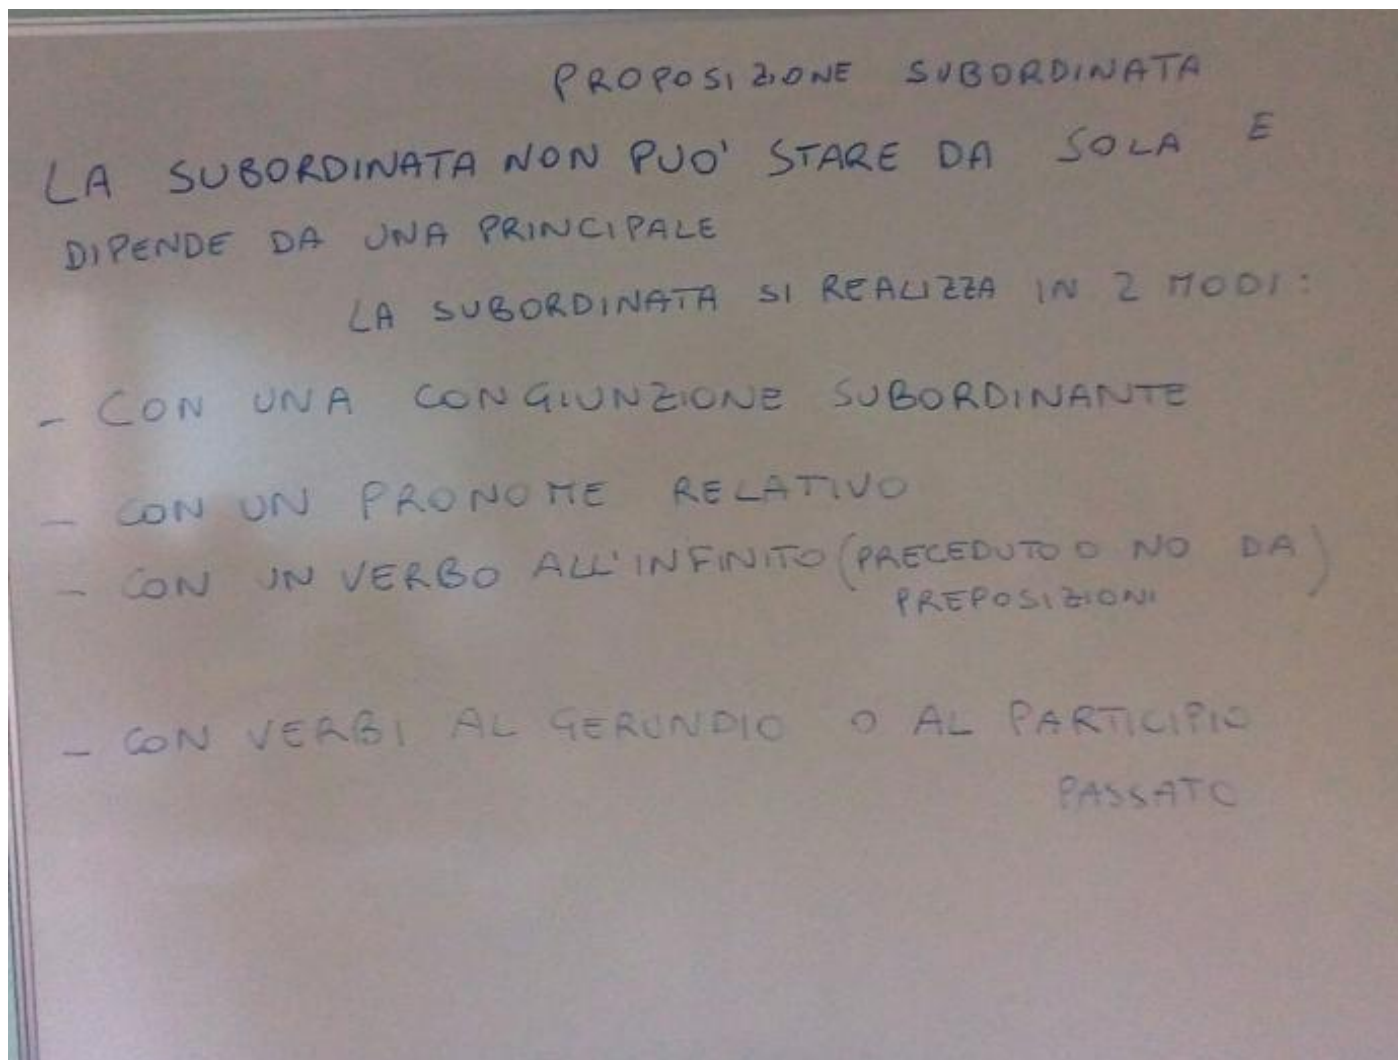 PROPOSIZIONE SUBORDINATA
LA SUBORDINATA NON PUO' STARE DA SOLA E
DIPENDE DA UNA PRINCIPALE
LA SUBORDINATA SI REALIZZA IN 2 MODI:
- CON UNA CONGIUNZIONE SUBORDINANTE
- CON UN PRONOME RELATIVO
- CON UN VERBO ALL'INFINITO (PRECEDUTO O NO DA
PREPOSIZIONI)
- CON VERBI AL GERUNDIO O AL PARTICIPIO
PASSATO